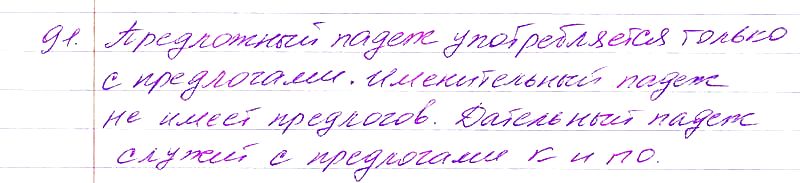 91. Предложный падеж употребляется только
с предлогами. Именительный падеж
не имеет предлогов. Дательный падеж
служит с предлогами к и по.